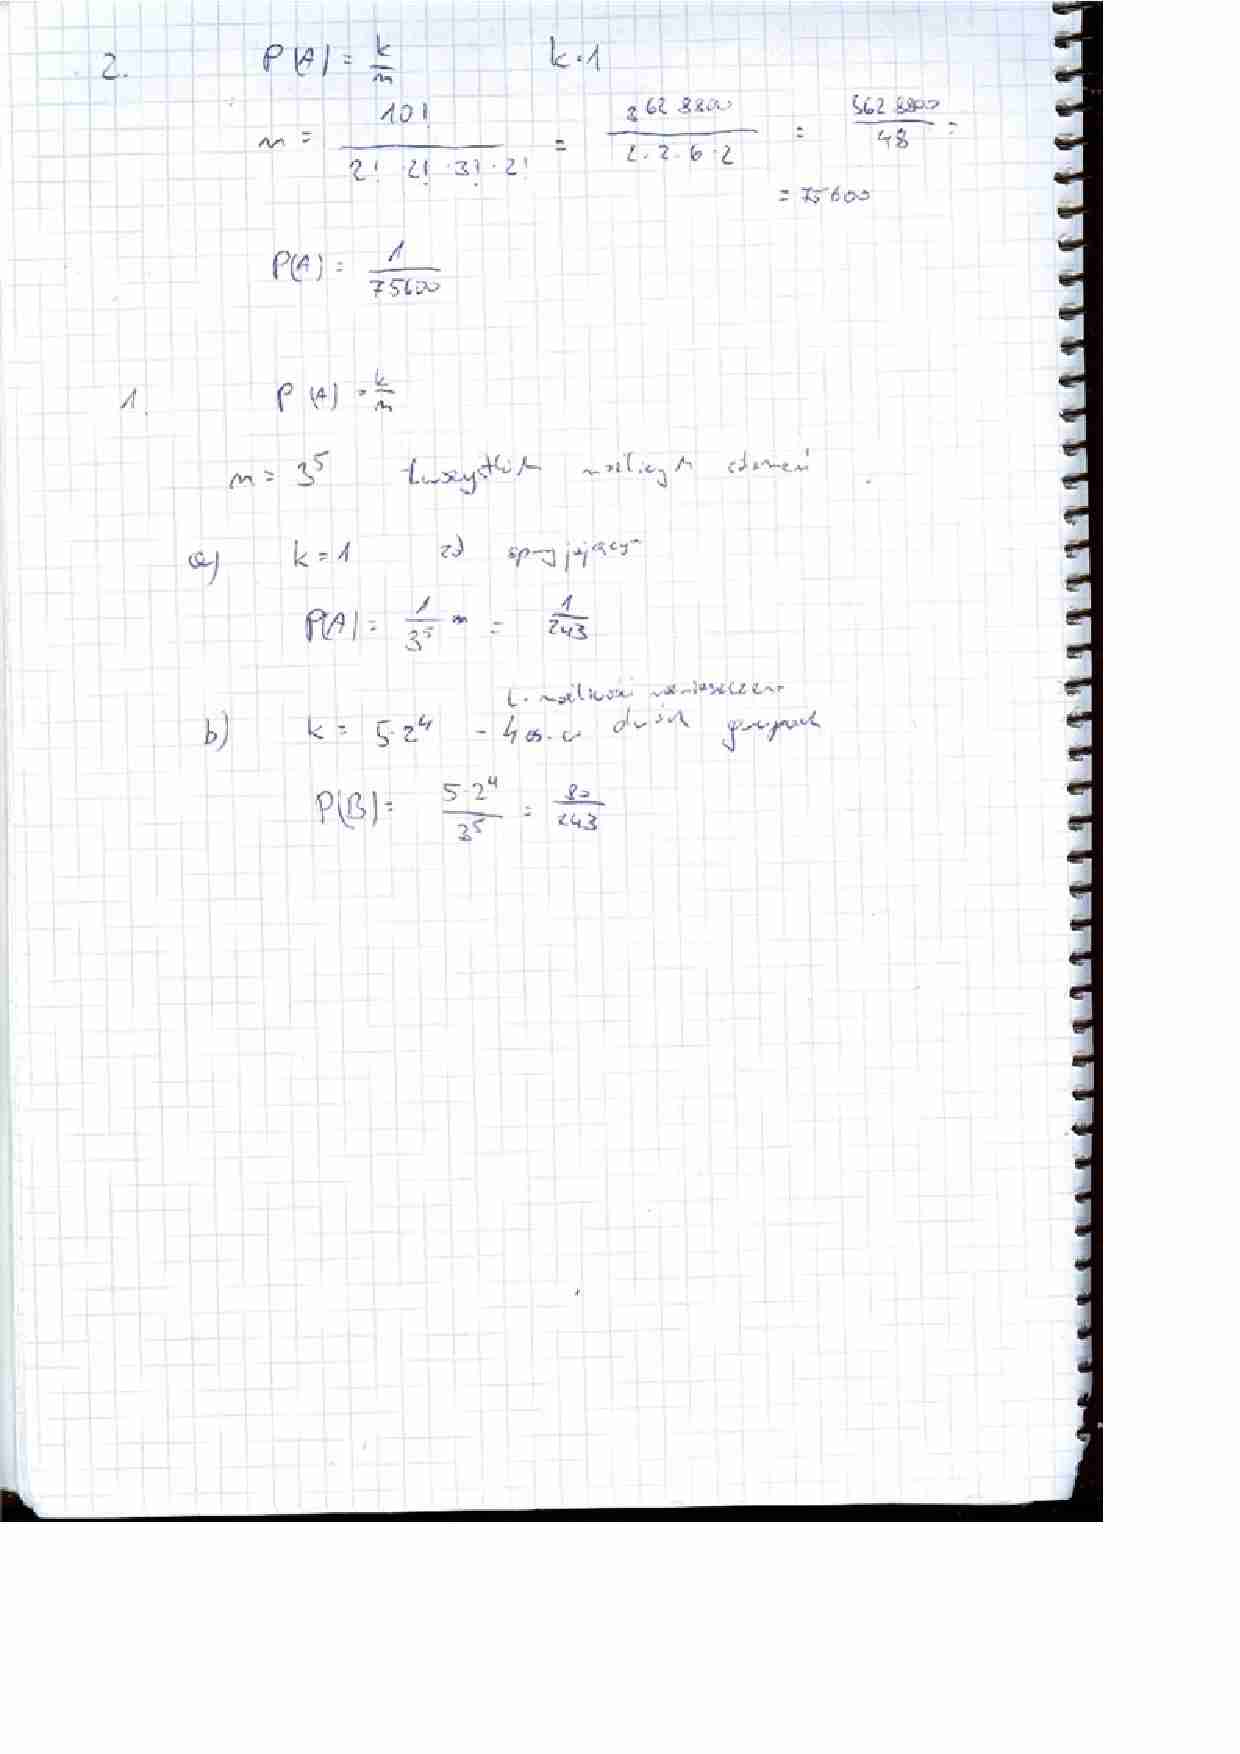 2. P(A) = k/n k=1
n = 10! / 2! · 2! · 3! · 2! = 3628800 / 2 · 2 · 6 · 2 = 3628800 / 48 =
= 75600
P(A) = 1/75600
1. P(A) = k/n
n = 3^5 wszystkich możliwych zdarzeń
a) k = 1 zd sprzyjających
P(A) = 1/3^5 = 1/243
l. możliwości
b) k = 5·2^4 - 4 os. w dwóch grupach
P(B) = 5·2^4 / 3^5 = 80/243